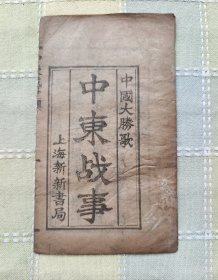 中國大勝歌
中東战事
上海新新書局